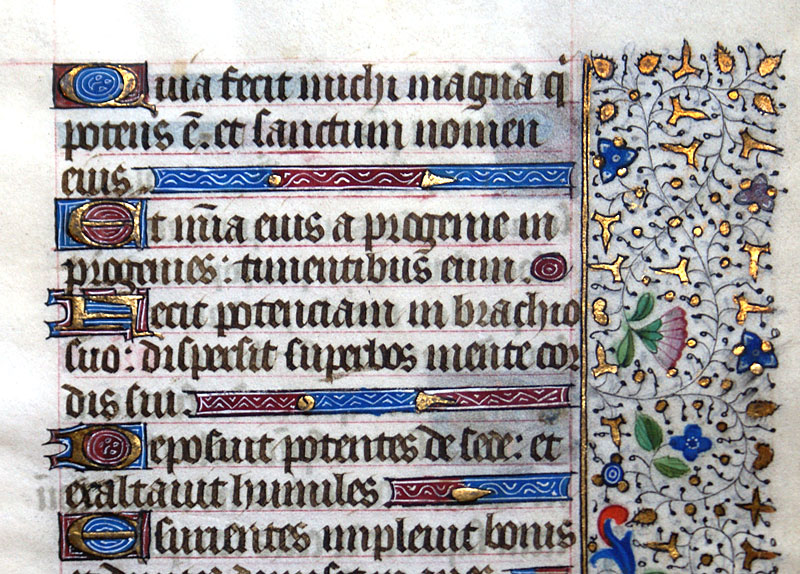 Quia fecit michi magna q̇
potens ē. et sanctum nomen
eius
Et m̄ia eius a progenie in
progenies: timentibus eum.
Fecit potenciam in brachio
suo: dispersit superbos mente cor
dis sui.
Deposuit potentes de sede: et
exaltavit humiles
Esurientes implevit bonis